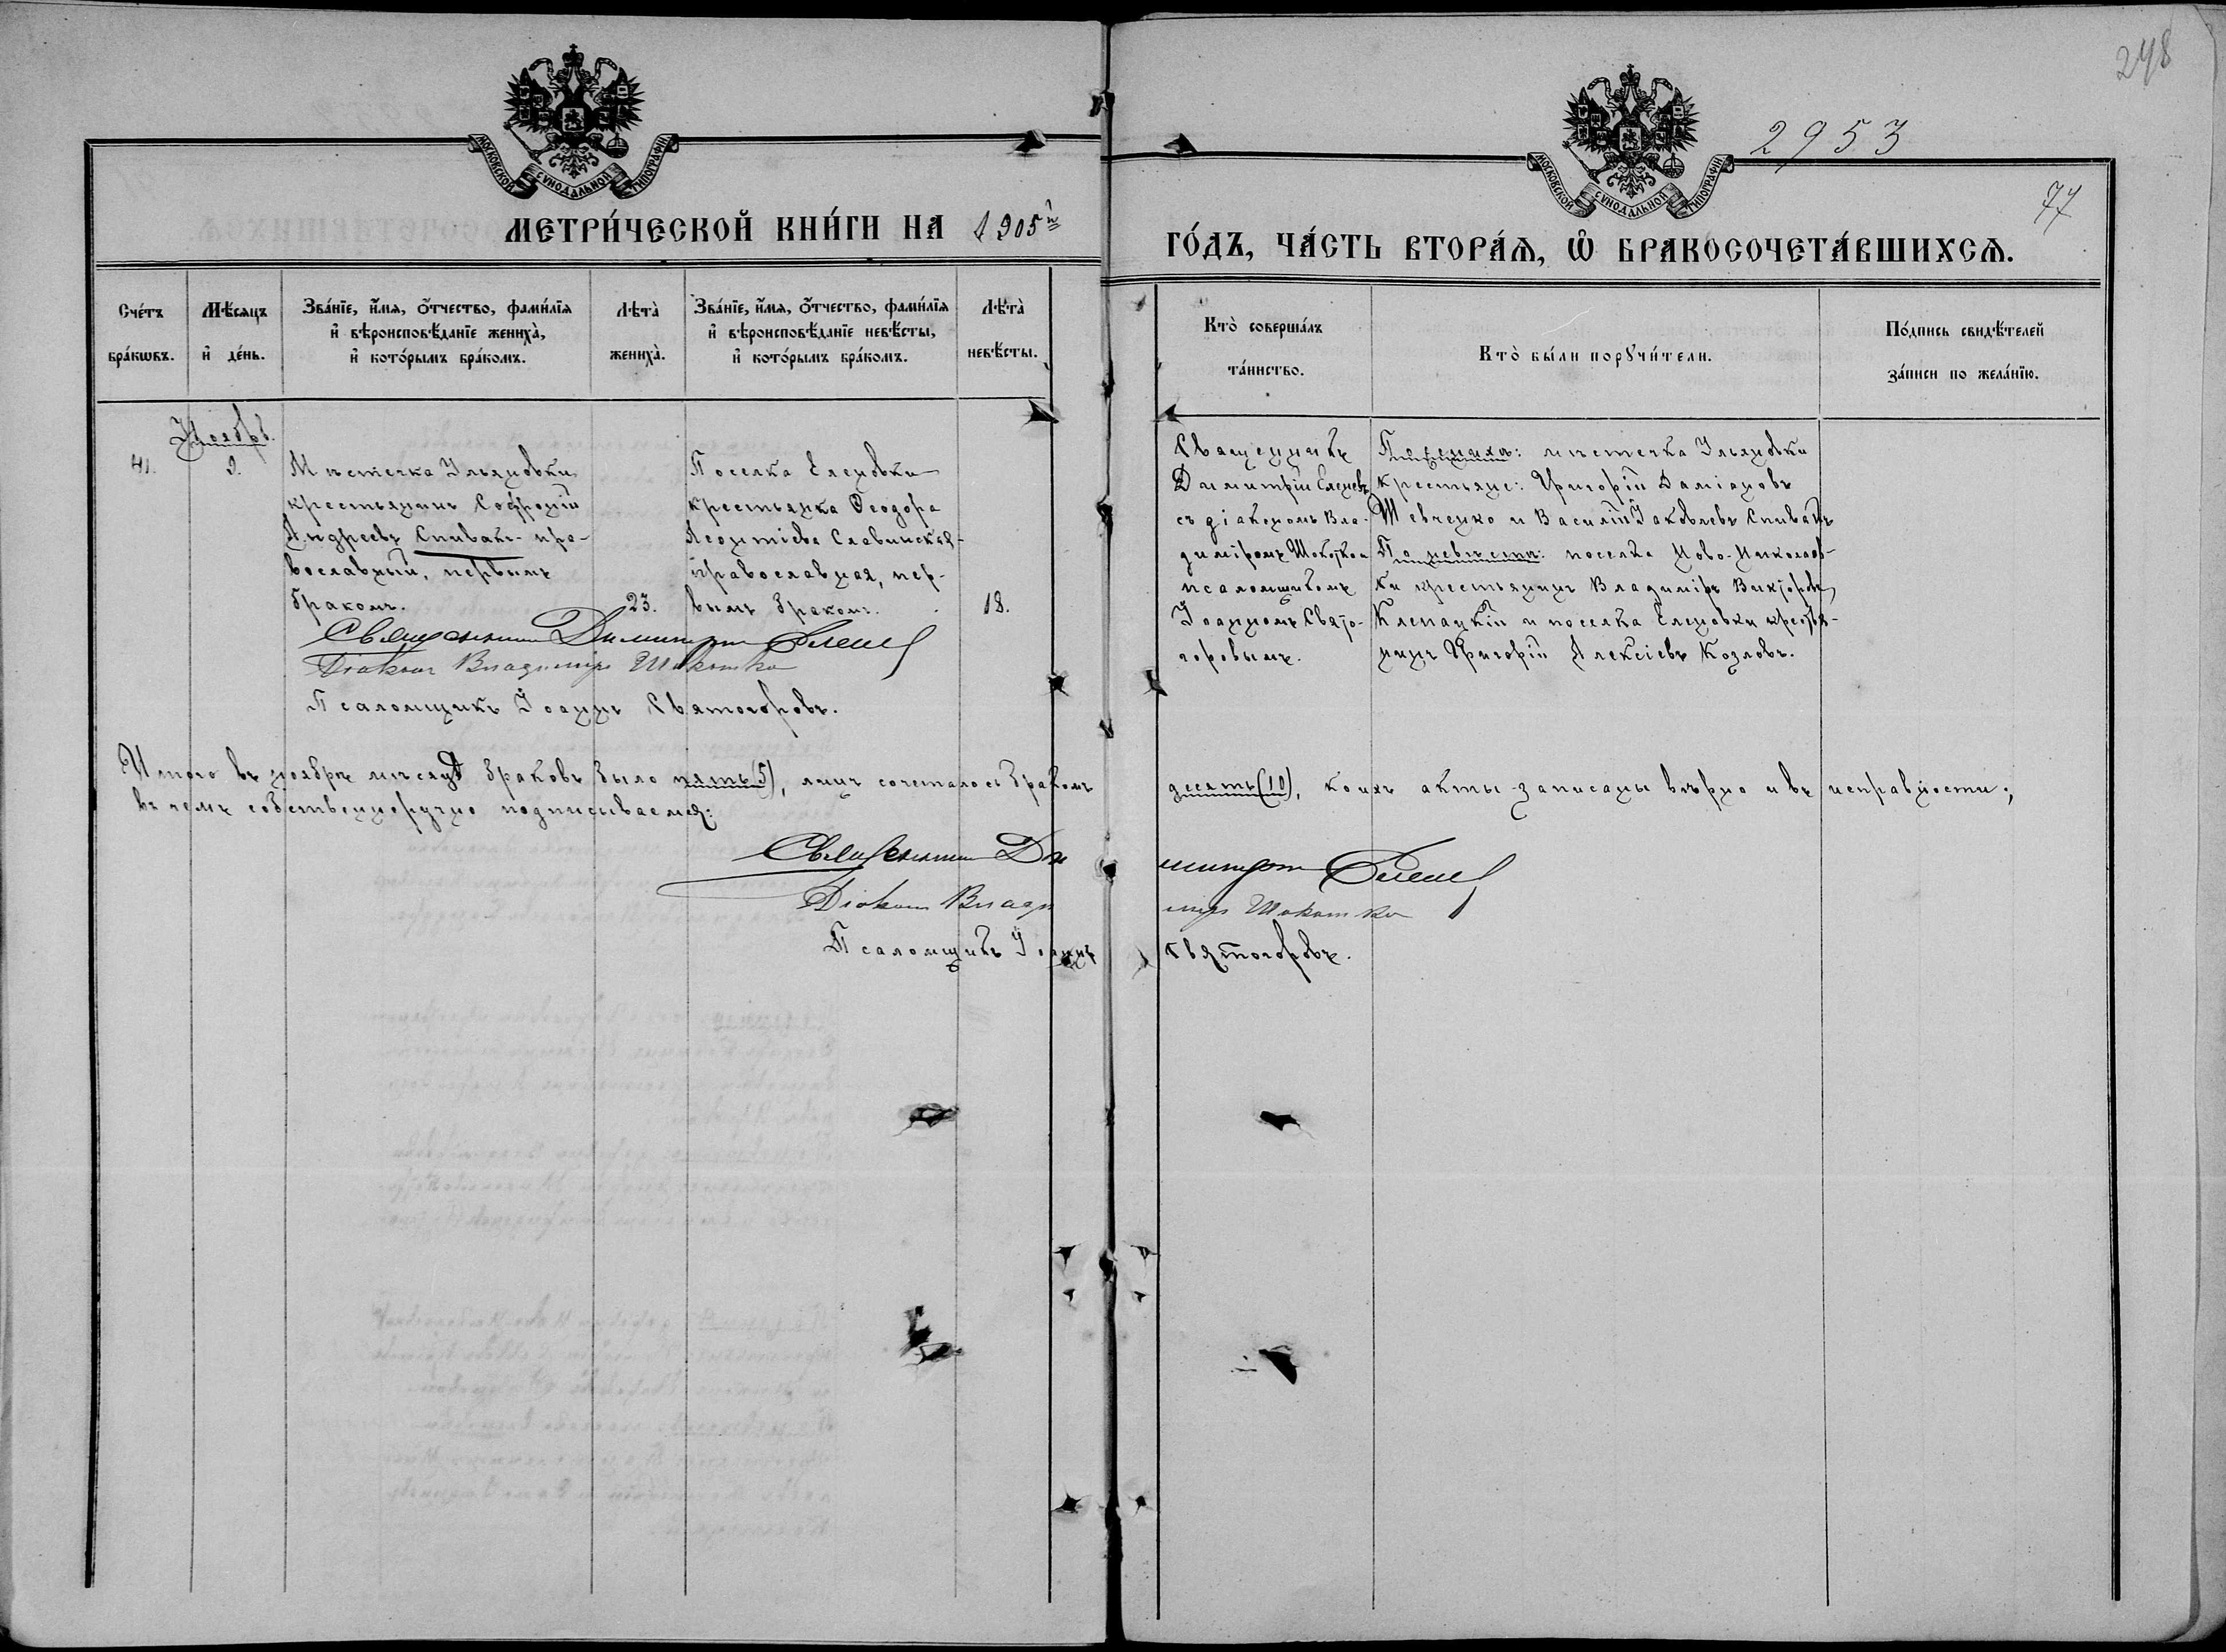 248
2953
77
МОСКОВСКОЙ СѴНОДАЛЬНОЙ ТИПОГРАФІИ
МОСКОВСКОЙ СѴНОДАЛЬНОЙ ТИПОГРАФІИ
МЕТРИ́ЧЕСКОЙ КНИ́ГИ НА 1905й
ГО́ДЪ, ЧА́СТЬ ВТОРА́Ѧ, Ѡ҆ БРАКОСОЧЕТА́ВШИХСѦ.
Сче́тъ
бра́кѡвъ.
Мѣ́сяцъ
и҆ де́нь.
Зва́нїе, и҆́мя, о҆́тчество, фами́лїя
и҆ вѣроисповѣ́данїе жениха̀,
и҆ кото́рымъ бра́комъ.
Лѣта̀
жениха̀.
Зва́нїе, и҆́мя, о҆́тчество, фами́лїя
и҆ вѣроисповѣ́данїе невѣ́сты,
и҆ кото́рымъ бра́комъ.
Лѣта̀
невѣ́сты.
Кто̀ соверша́лъ
та́инство.
Кто̀ бы́ли порꙋчи́тели.
По́дпись свидѣ́телей
за́писи по жела́нїю.
Ноябрь.
41.
9.
Мѣстечка Ульяновки
крестьянинъ Софроній
Андреевъ Спивакъ - пра-
вославный, первымъ
бракомъ.
23.
Поселка Еленовки
крестьянка Ѳеодора
Леонтіева Славинская -
православная, пер-
вымъ бракомъ.
18.
Священникъ
Димитрій Еленевъ
съ діакономъ Вла-
диміромъ Шокотко и
псаломщикомъ
Іоанномъ Свято-
горовымъ.
По женихѣ: мѣстечка Ульяновки
крестьяне: Григорій Даміановъ
Шевченко и Василій Іаковлевъ Спивакъ
По невѣстѣ: поселка Ново-Николаев-
ки крестьянинъ Владиміръ Викторовъ
Клепацкій и поселка Еленовки крестья-
нинъ Григорій Алексіевъ Козловъ.
Священникъ Димитрій Еленев
Діаконъ Владиміръ Шокотко
Псаломщикъ Іоаннъ Святогоровъ.
Итого въ ноябрѣ мѣсяцѣ браковъ было пять (5), лицъ сочеталось бракомъ десять (10), коихъ акты записаны вѣрно и въ исправности;
въ чемъ собственноручно подписываемся:
Священникъ Димитрій Еленев
Діаконъ Владиміръ Шокотко
Псаломщикъ Іоаннъ Святогоровъ.